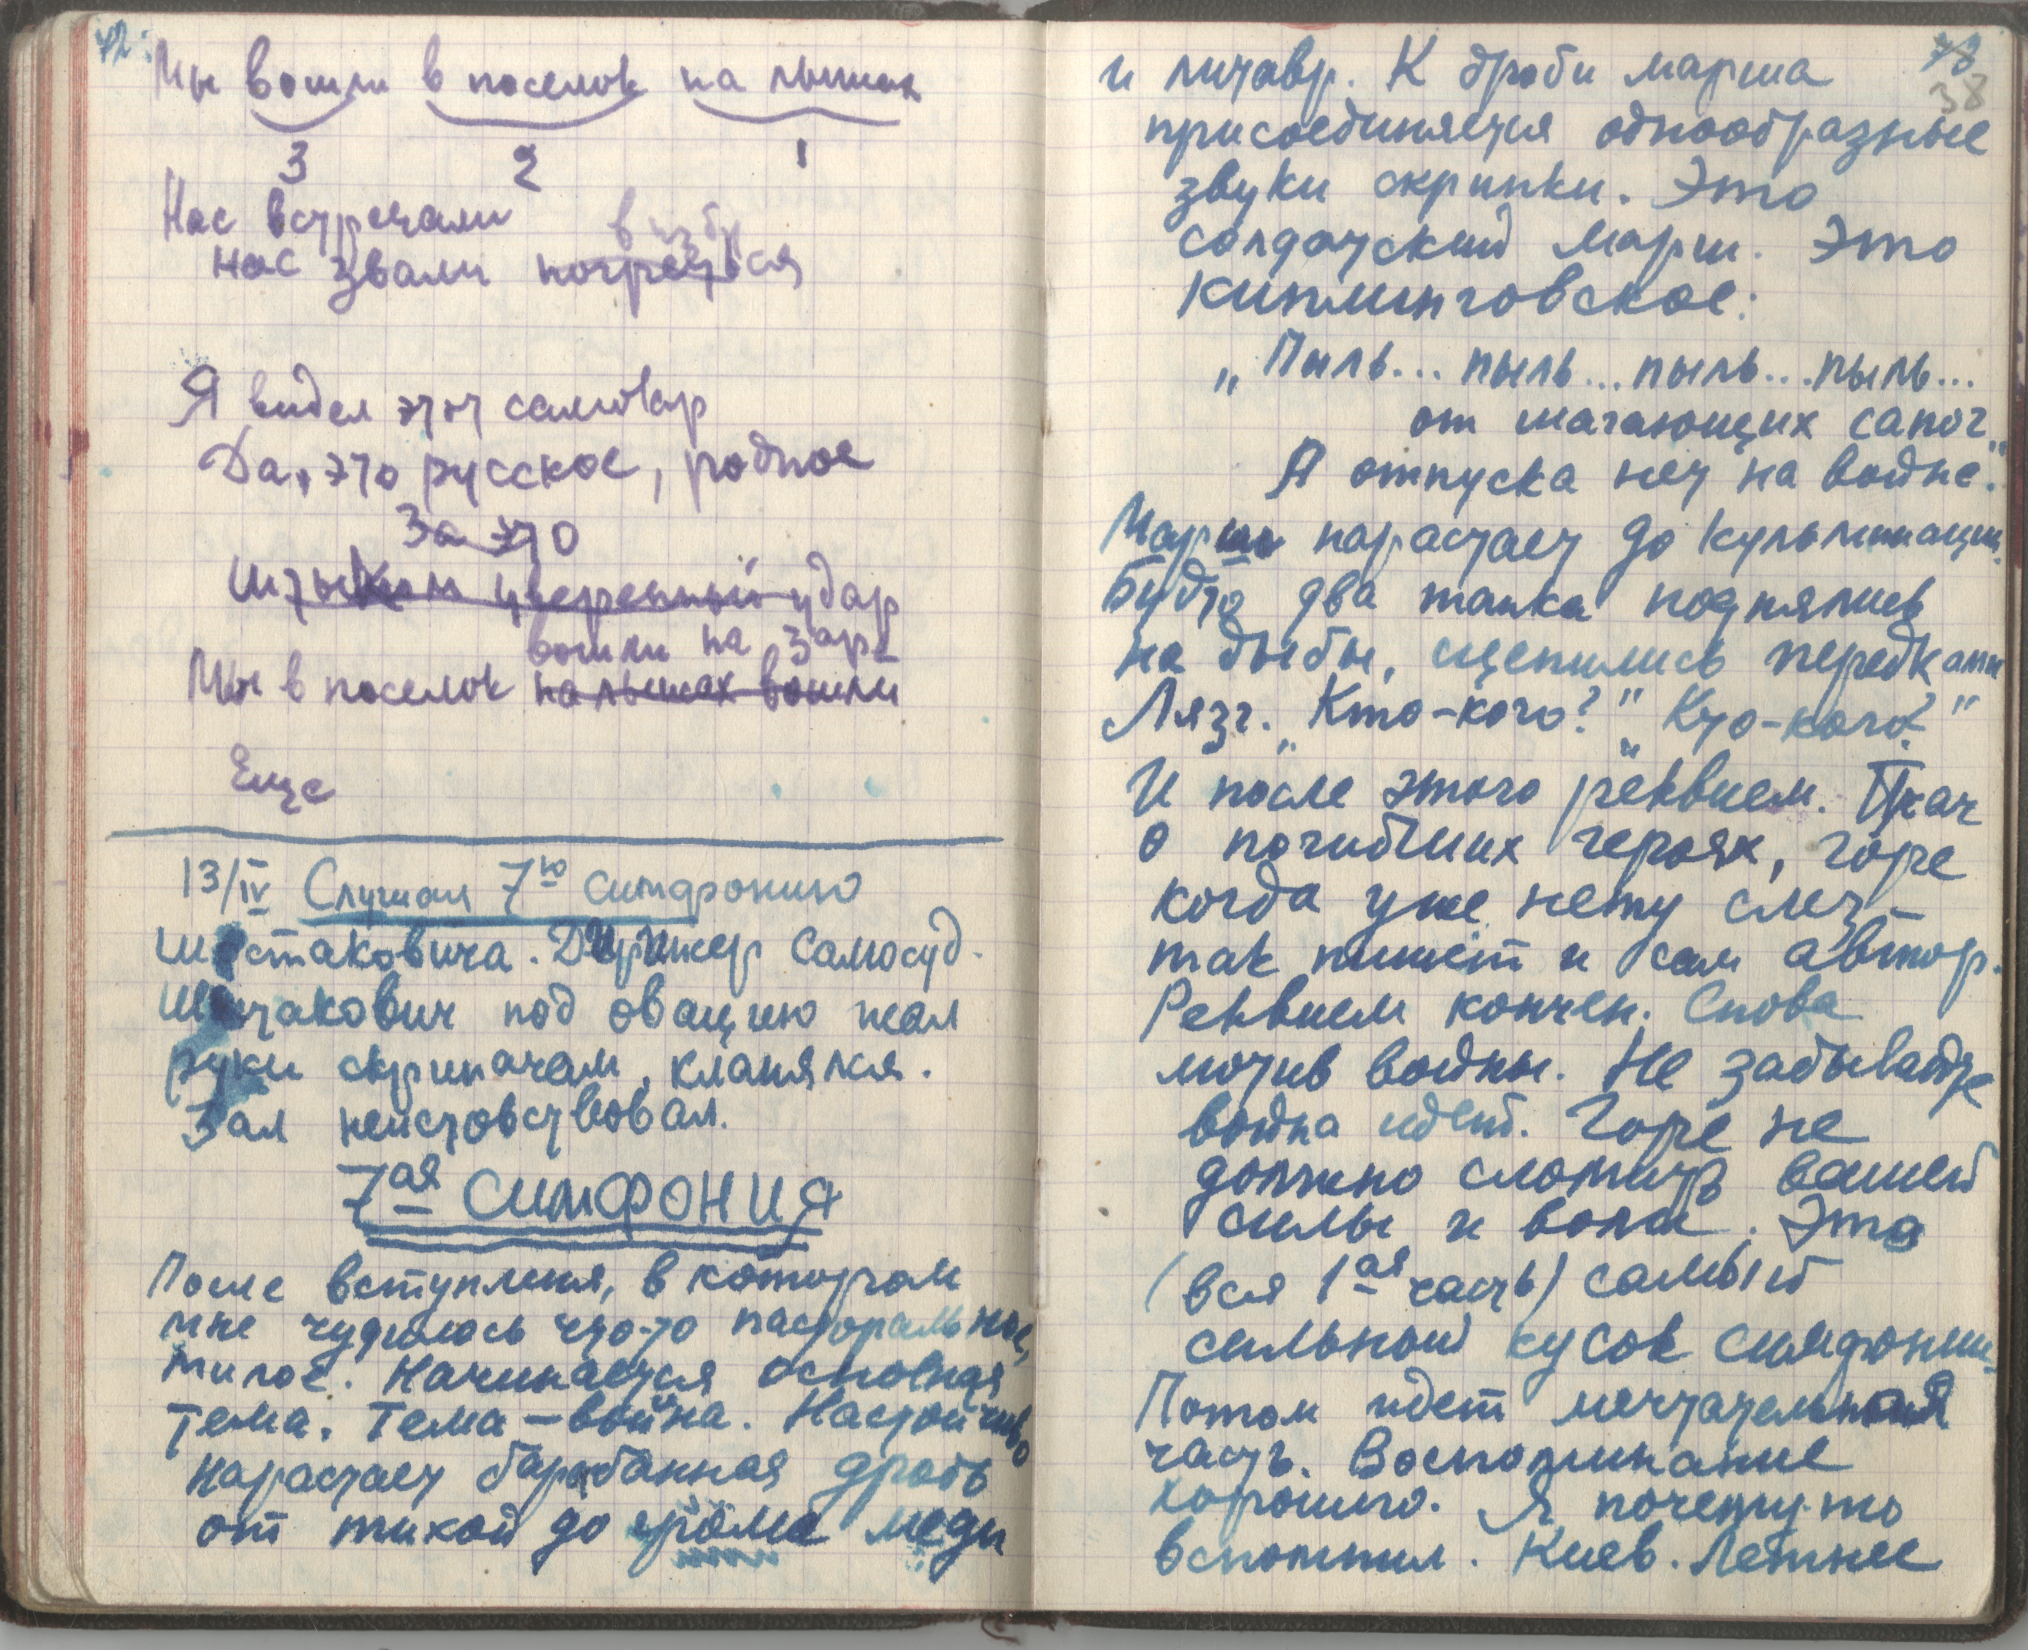 72.
Мы вошли в поселок на лыжах
3 2 1
Нас встречали
в избу
нас звали погреться
Я видел этот самовар
Да, это русское, родное
За это
штыком уверенный удар
вошли на заре
Мы в поселок на лыжах вошли
Еще
13/IV Слушал 7ую симфонию
Шостаковича. Дирижер Самосуд.
Шостакович под овацию жал
руки скрипачам, кланялся.
Зал неистовствовал.
7ая СИМФОНИЯ
После вступления, в котором
мне чудилось что-то пасторальное,
милое. Начинается основная
тема. Тема – война. Настойчиво
нарастает барабанная дробь
от тихой до грома меди
73
38
и литавр. К дроби марша
присоединяется однообразные
звуки скрипки. Это
солдатский марш. Это
Киплинговское:
„Пыль... пыль... пыль... пыль...
от шагающих сапог„
А отпуска нет на войне."
Марш нарастает до кульминации.
Будто два танка поднялись
на дыбы, сцепились передками
Лязг. „Кто-кого?" „Кто-кого?"
И после этого реквием. Плач
о погибших героях, горе
когда уже нету слез –
так пишет и сам автор.
Реквием кончен. Снова
мотив войны. Не забывайте
война идет. Горе не
должно сломить вашей
силы и воли. Это
(вся 1ая часть) самый
сильный кусок симфонии.
Потом идет мечтательная
часть. Воспоминание
хорошего. Я почему-то
вспомнил. Киев. Летнее